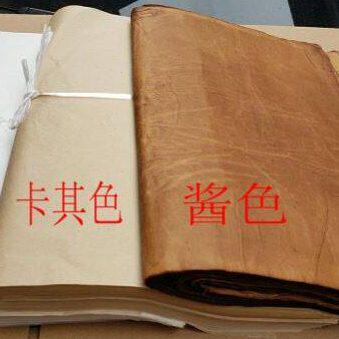 卡其色
酱色